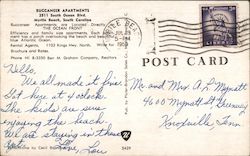 BUCCANEER APARTMENTS
2811 South Ocean Blvd.
Myrtle Beach, South Carolina
Buccaneer Apartments are Located Directly
THE OCEAN FRONT
Efficiency and family size apartments. Each
ment has a porch overlooking the beach and
blue Atlantic Ocean.
Rental Agents, 1102 Kings Hwy. North. Write for
Brochure and Rates.
Phone HI 8-3250 Ben M. Graham Company, Realtors
POST CARD
Hello,
We all made it fine.
Got here at 4 o'clock.
The kids are sure
enjoying the beach.
We are staying in these
Apts.
Love, Lou
Mr. and Mrs. A. L. Mynatt
4600 Mynatt St. Greenway
Knoxville, Tenn.